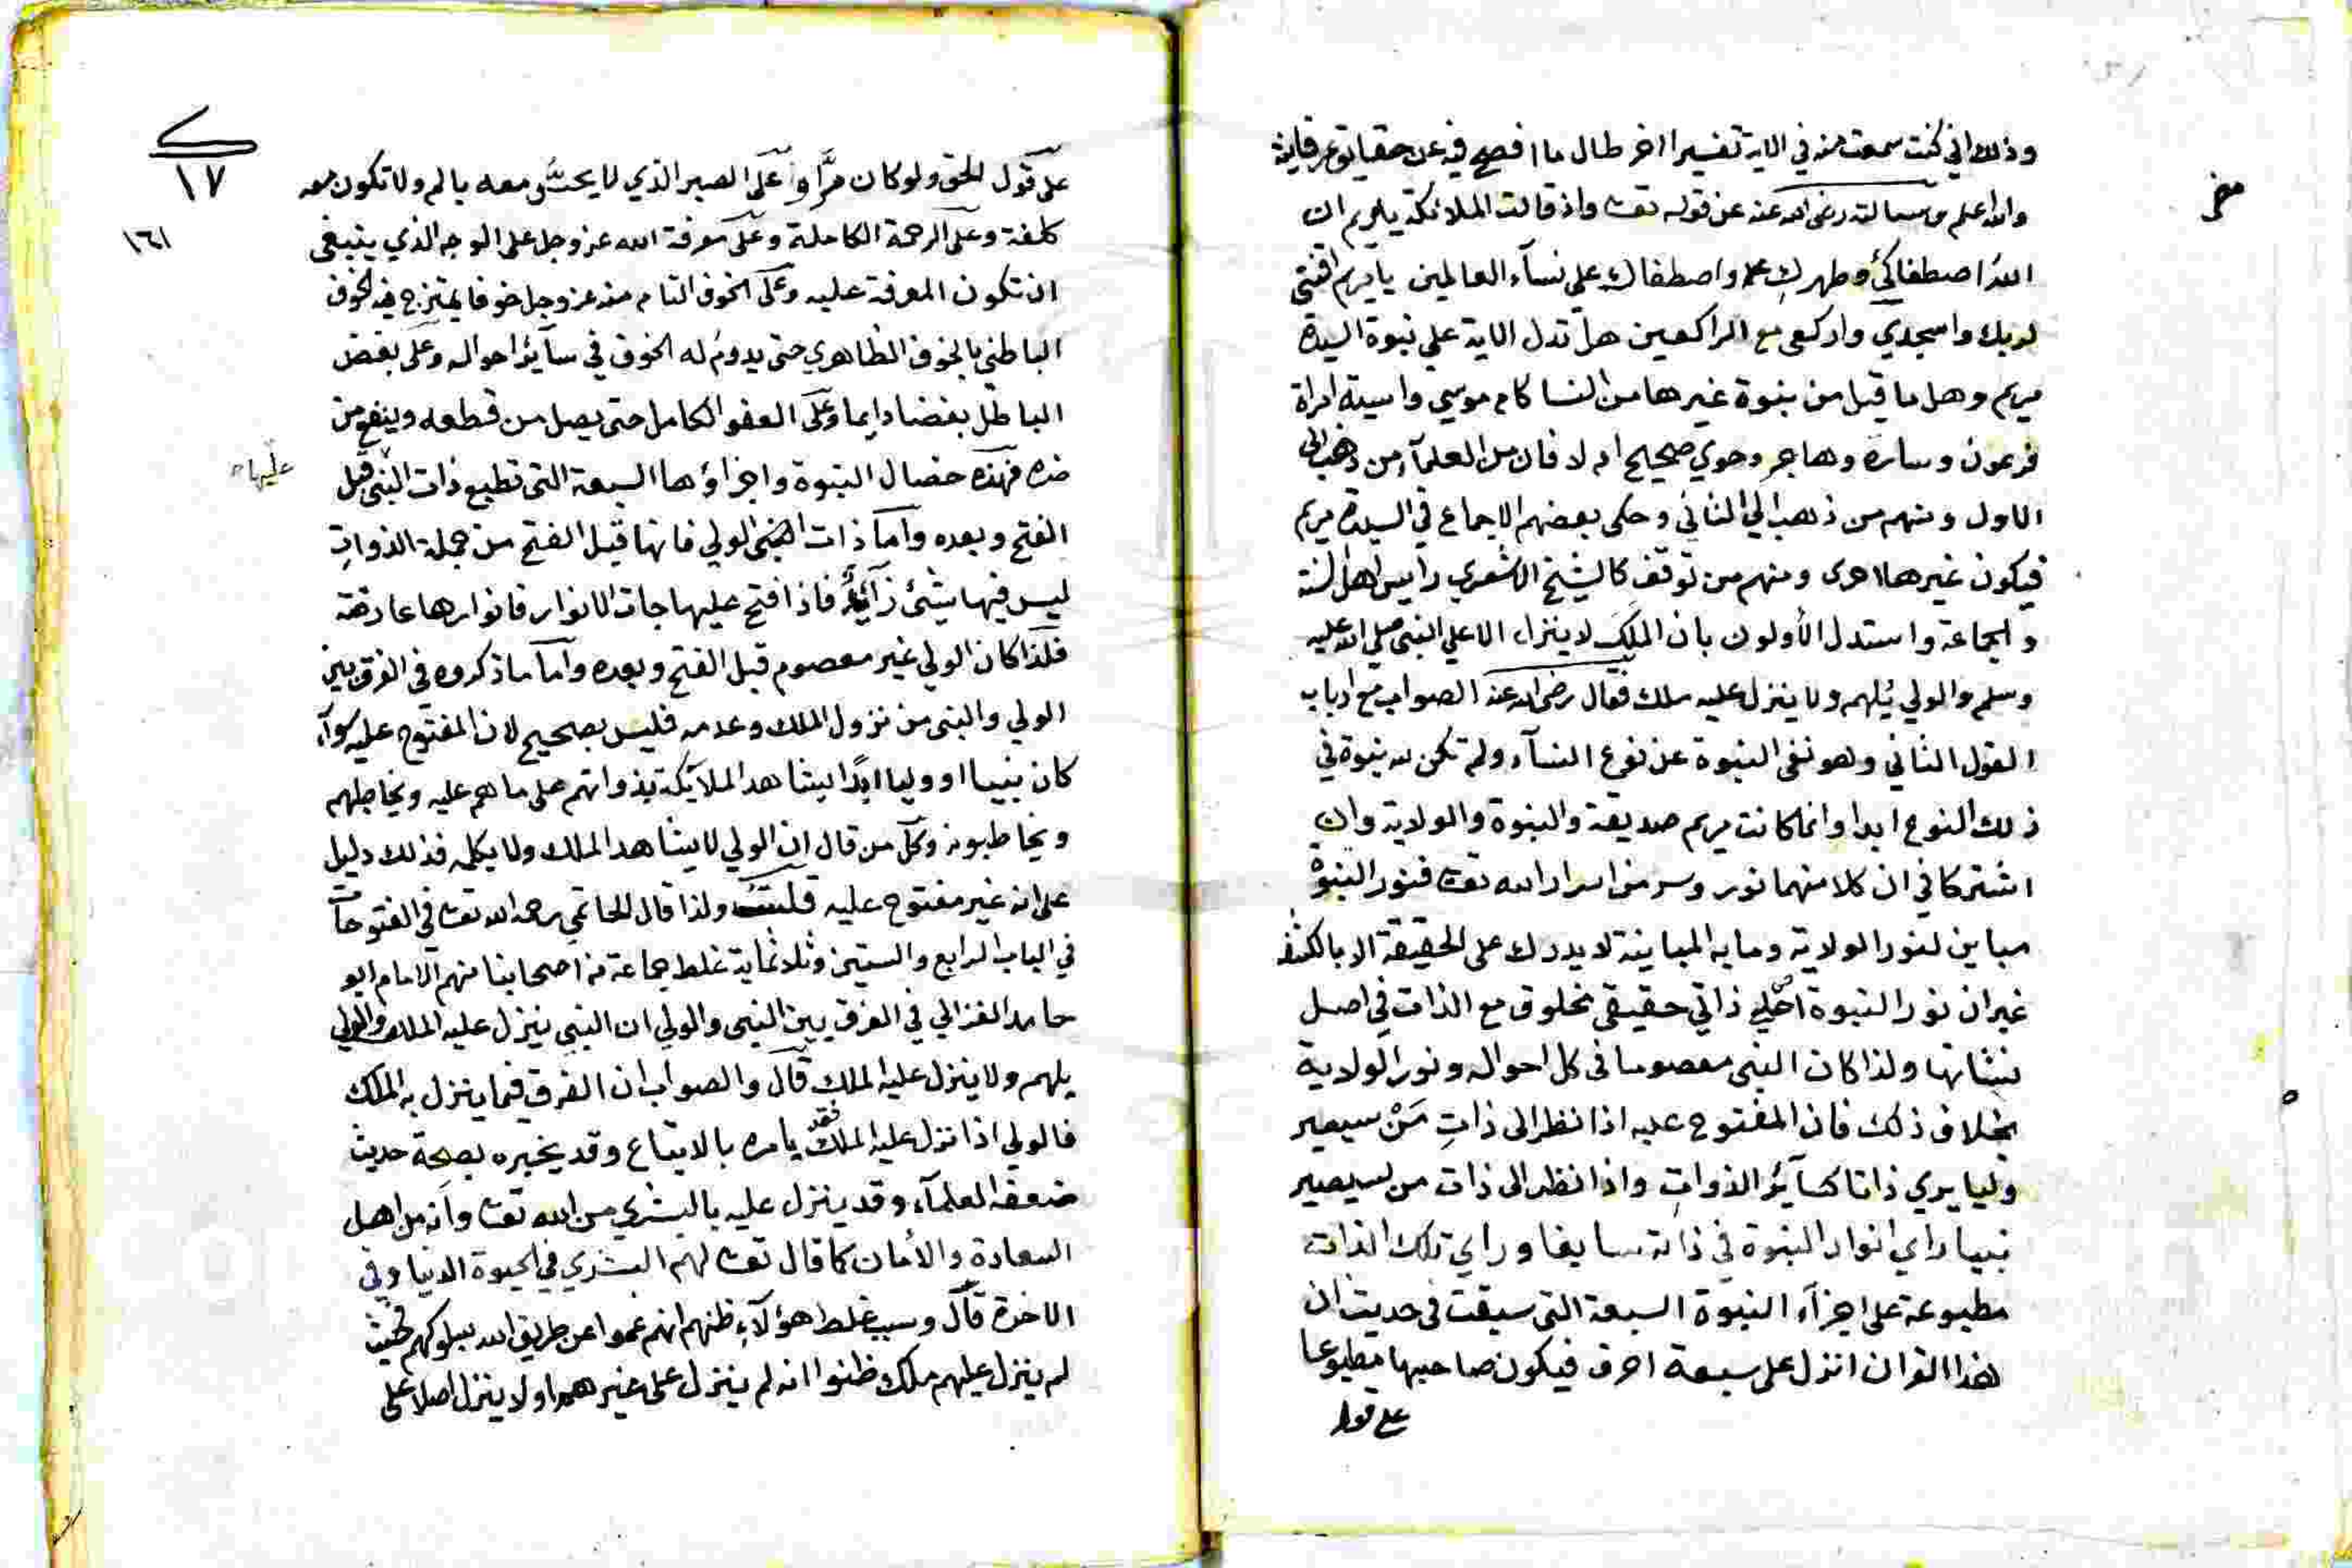 وذلك اني كنت سمعت منه في الاية تفسيرا اخر طال ما افصح فيه عن حقايق عرفانية
والله اعلم وسالته رضي الله عنه عن قوله تعا واذ قالت الملائكة يامريم ان
الله اصطفاك وطهرك واصطفاك على نساء العالمين يا مريم اقنتي
لربك واسجدي واركعى مع الراكعين هل تدل الاية علي نبوة السيدة
مريم وهل ما قيل من نبوة غيرها من النسا كام موسي واسية امراة
فرعون وسارة وهاجر وحوي صحيح ام لا فان من العلمآء من ذهب الى
الاول ومنهم من ذهب الي الثاني وحكى بعضهم الاجماع في السيدة مريم
فيكون غيرها احرى ومنهم من توقف كالشيخ الاشعري رايس اهل السنة
والجماعة واستدل الأولون بان الملك لا ينزل الا علي النبي صلي الله عليه
وسلم والولي يُلهم ولا ينزل عليه ملك فقال رضي الله عنه الصواب مع ارباب
القول الثاني وهو نفى النبوة عن نوع النسآء ولم تكن لله نبوة في
ذلك النوع ابدا وانما كانت مريم صديقة والنبوة والولاية وان
اشتركا في ان كلا منهما نور وسر من اسرار الله تعا فنور النبوة
مباين لنور الولاية وما به المباينة لا يدرك على الحقيقة الا بالكشف
غير ان نور النبوة اصلي ذاتي حقيقي مخلوق مع الذات في اصل
نشاتها ولذا كان النبي معصوما فى كل احواله ونور الولاية
بخلاف ذلك فان المفتوح عليه اذا نظر الى ذاتِ مَنْ سيصير
وليا يري ذاتا كسآئر الذواتِ واذا نظر الى ذات من سيصير
نبيا راي انوار النبوة في ذاته سابقا وراي تلك الذات
مطبوعة على اجزآء النبوة السبعة التى سبقت فى حديث ان
هذا القران انزل على سبعة احرف فيكون صاحبها مطبوعا
على قول
١٧
١٦١
على قول الحق ولو كان مرّا وعلى الصبر الذي لا يحسّ معه بالم ولا تكون معه
كلفة وعلى الرحمة الكاملة وعلى معرفة الله عز وجل على الوجه الذي ينبغى
ان تكون المعرفة عليه وعلى الخوف التام منه عز وجل خوفا يمتزج فيه الخوف
الباطني بالخوف الظاهري حتى يدوم له الخوف في سآئر احواله وعلى بغض
الباطل بغضا دايما وعلى العفو الكامل حتى يصل من قطعه وينفع من
ضره فهذه خصال النبوة واجزاؤها السبعة التى تطبع ذات النبي قبل
عليها
الفتح وبعده واما ذات الولي فانها قبل الفتح من جملة الذواتِ
ليس فيها شئ زآئد فاذا فتح عليها جات الانوار فانوارها عارضة
فلذا كان الولي غير معصوم قبل الفتح وبعده واما ما ذكروه في الفرق بين
الولي والنبي من نزول الملك وعدمه فليس بصحيح لان المفتوح عليه سوآء
كان نبيا او وليا لابد ان يشاهد الملآئكة بذواتهم على ما هم عليه ويخاطبهم
ويخاطبونه وكل من قال ان الولي لا يشاهد الملك ولا يكلمه فذلك دليل
على انه غير مفتوح عليه قلت ولذا قال الحاتمي رحمه الله تعا في الفتوحات
في الباب الرابع والستين وثلاثماية غلط جماعة من اصحابنا منهم الامام ابو
حامد الغزالي في الفرق بين النبي والولي ان النبي ينزل عليه الملك والولي
يلهم ولا ينزل عليه الملك قال والصواب ان الفرق فيما ينزل به الملك
فالولي اذا نزل عليه الملك فقد يامره بالاتباع وقد يخبره بصحة حديث
ضعفه العلمآء وقد ينزل عليه بالبشري من الله تعا وانه من اهل
السعادة والأمان كما قال تعا لهم البشري في الحيوة الدنيا وفي
الاخرة قال وسبب غلط هؤلآء ظنهم انهم عموا عن طريق الله بسلوكهم فحيث
لم ينزل عليهم ملك ظنوا انه لم ينزل على غيرهم ولا ينزل اصلا على